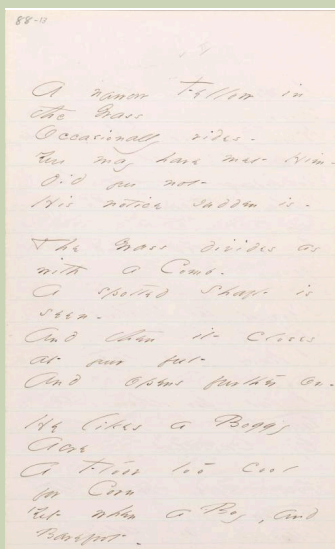 88-11
A narrow Fellow in
the Grass
Occasionally rides -
You may have met Him -
did you not -
His notice sudden is -
The Grass divides as
with a Comb -
A spotted Shaft is
seen -
And then it closes
at your feet
And opens further on -
He likes a Boggy
Acre
A Floor too cool
for Corn
Yet when a Boy, and
Barefoot -